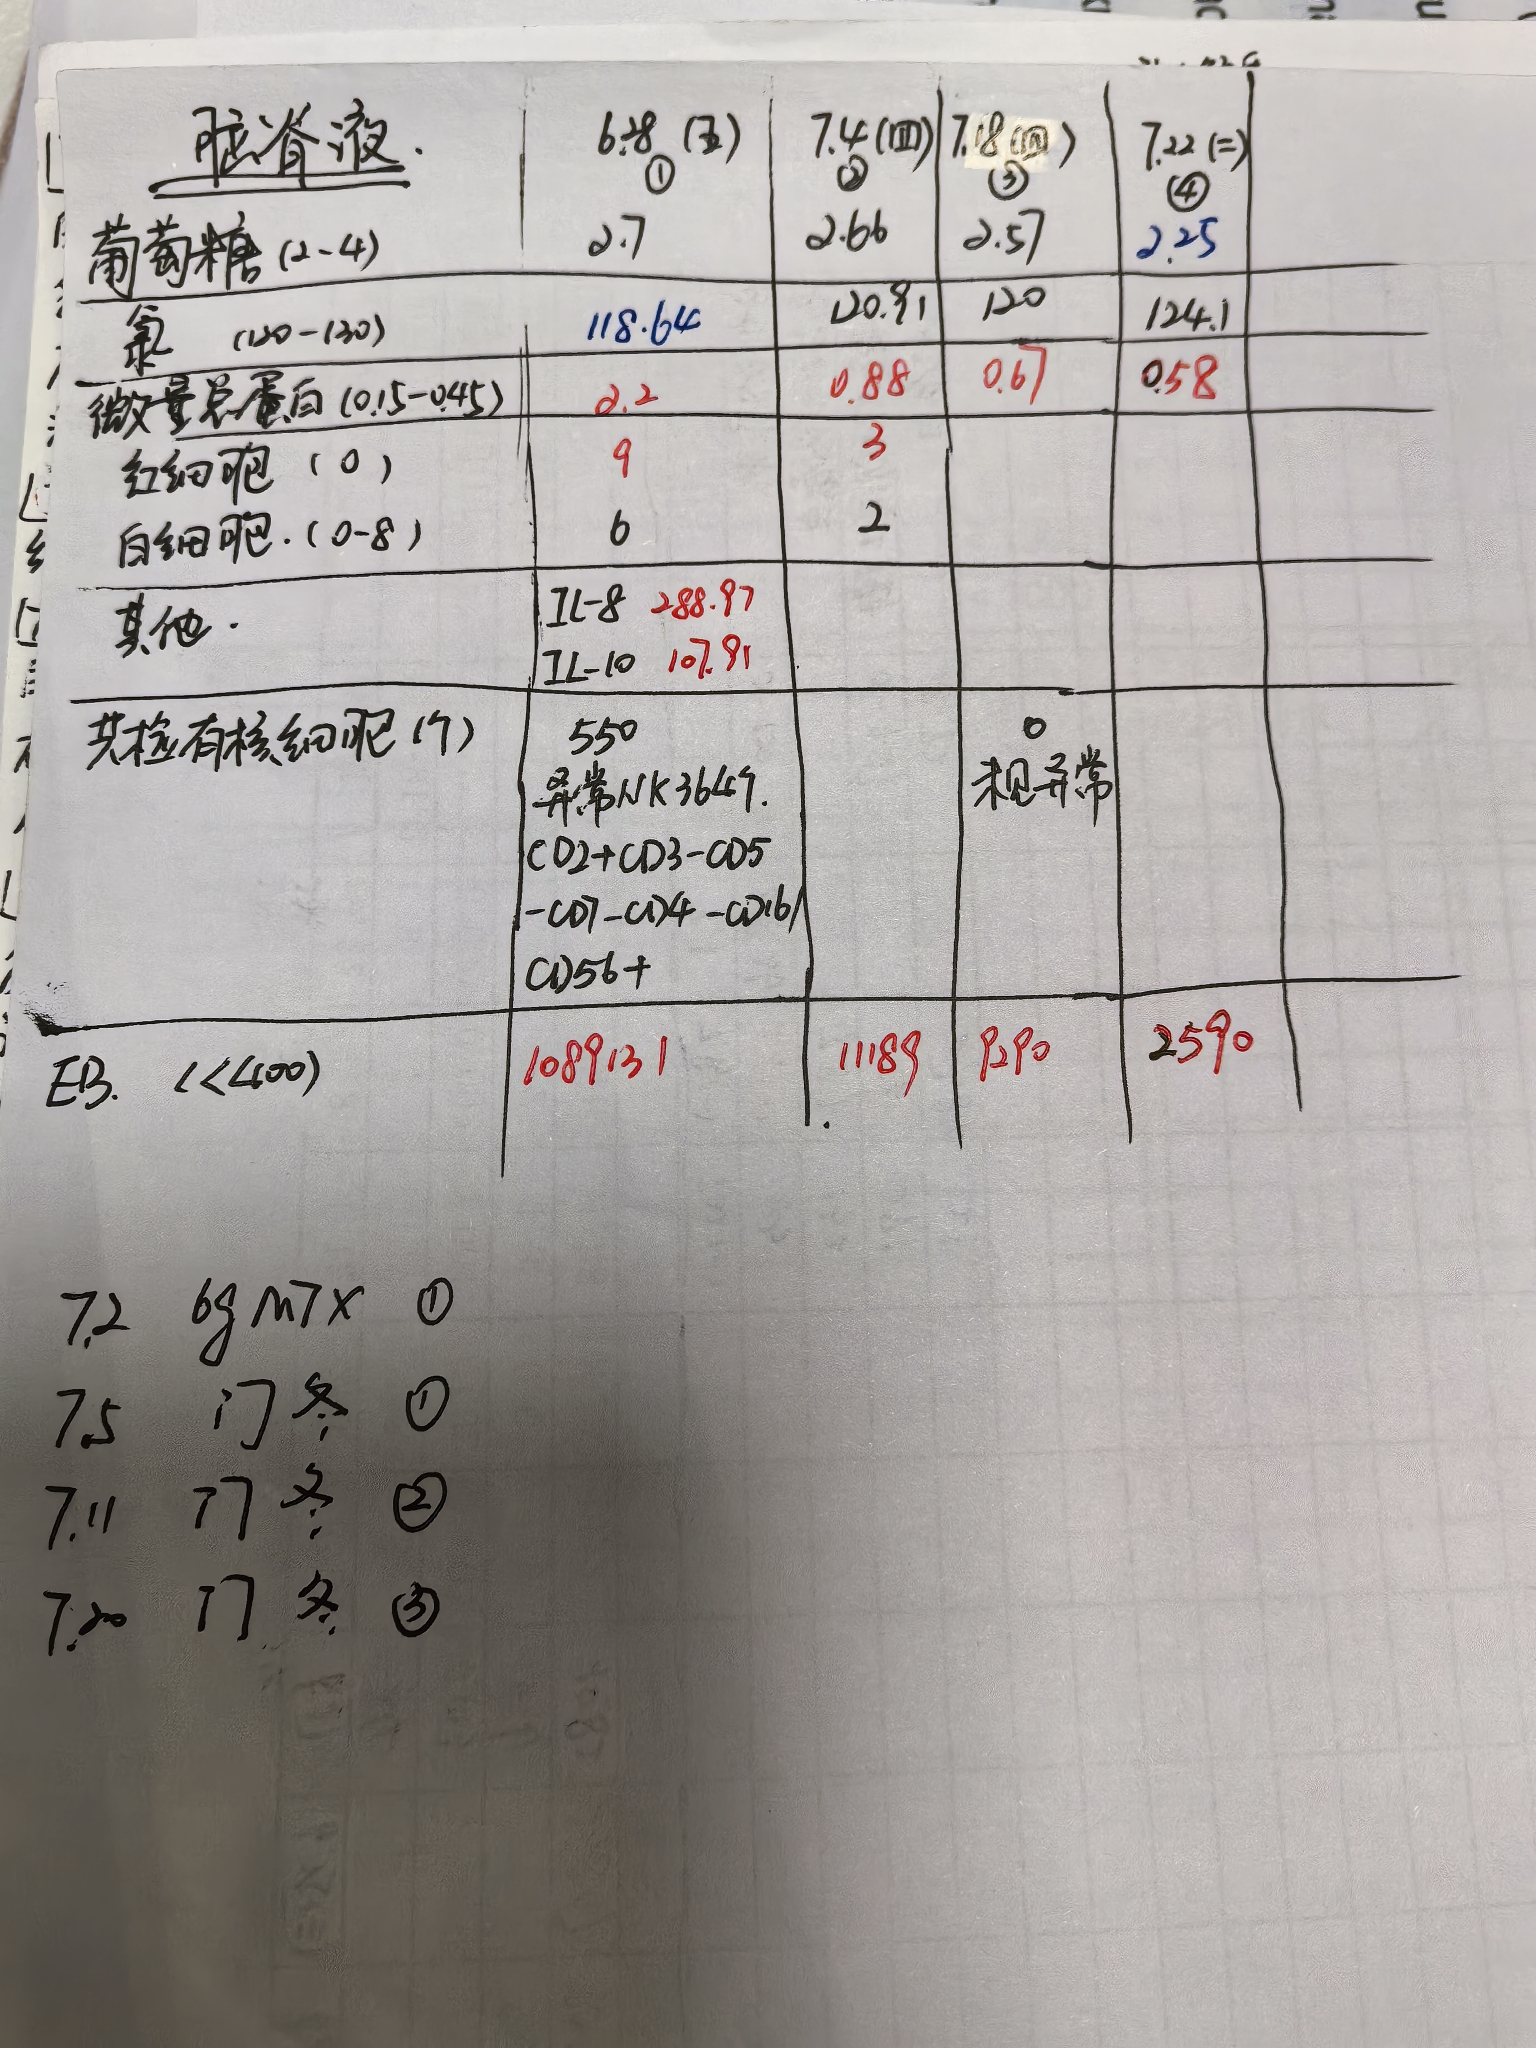 脑脊液. 6.28 (五) 7.4 (四) 7.18 (四) 7.22 (二)
① ② ③ ④
葡萄糖 (2-4) 2.7 2.66 2.57 2.25
氯 (120-130) 118.64 120.91 120 124.1
微量总蛋白 (0.15-0.45) 2.2 0.88 0.67 0.58
红细胞 (0) 9 3
白细胞. (0-8) 6 2
其他. IL-8 288.97
IL-10 107.91
共检有核细胞(个) 550 0
异常NK364个. 未见异常
CD2+CD3-CD5
-CD7-CD4-CD16/
CD56+
EB. (<400) 1089131 11189 9290 2590
7.2 6g MTX ①
7.5 门冬 ①
7.11 门冬 ②
7.20 门冬 ③